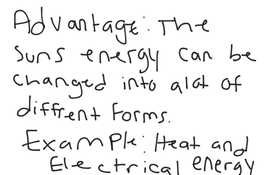 Advantage: The
Suns energy can be
changed into alot of
diffrent forms.
Example: Heat and
Electrical energy